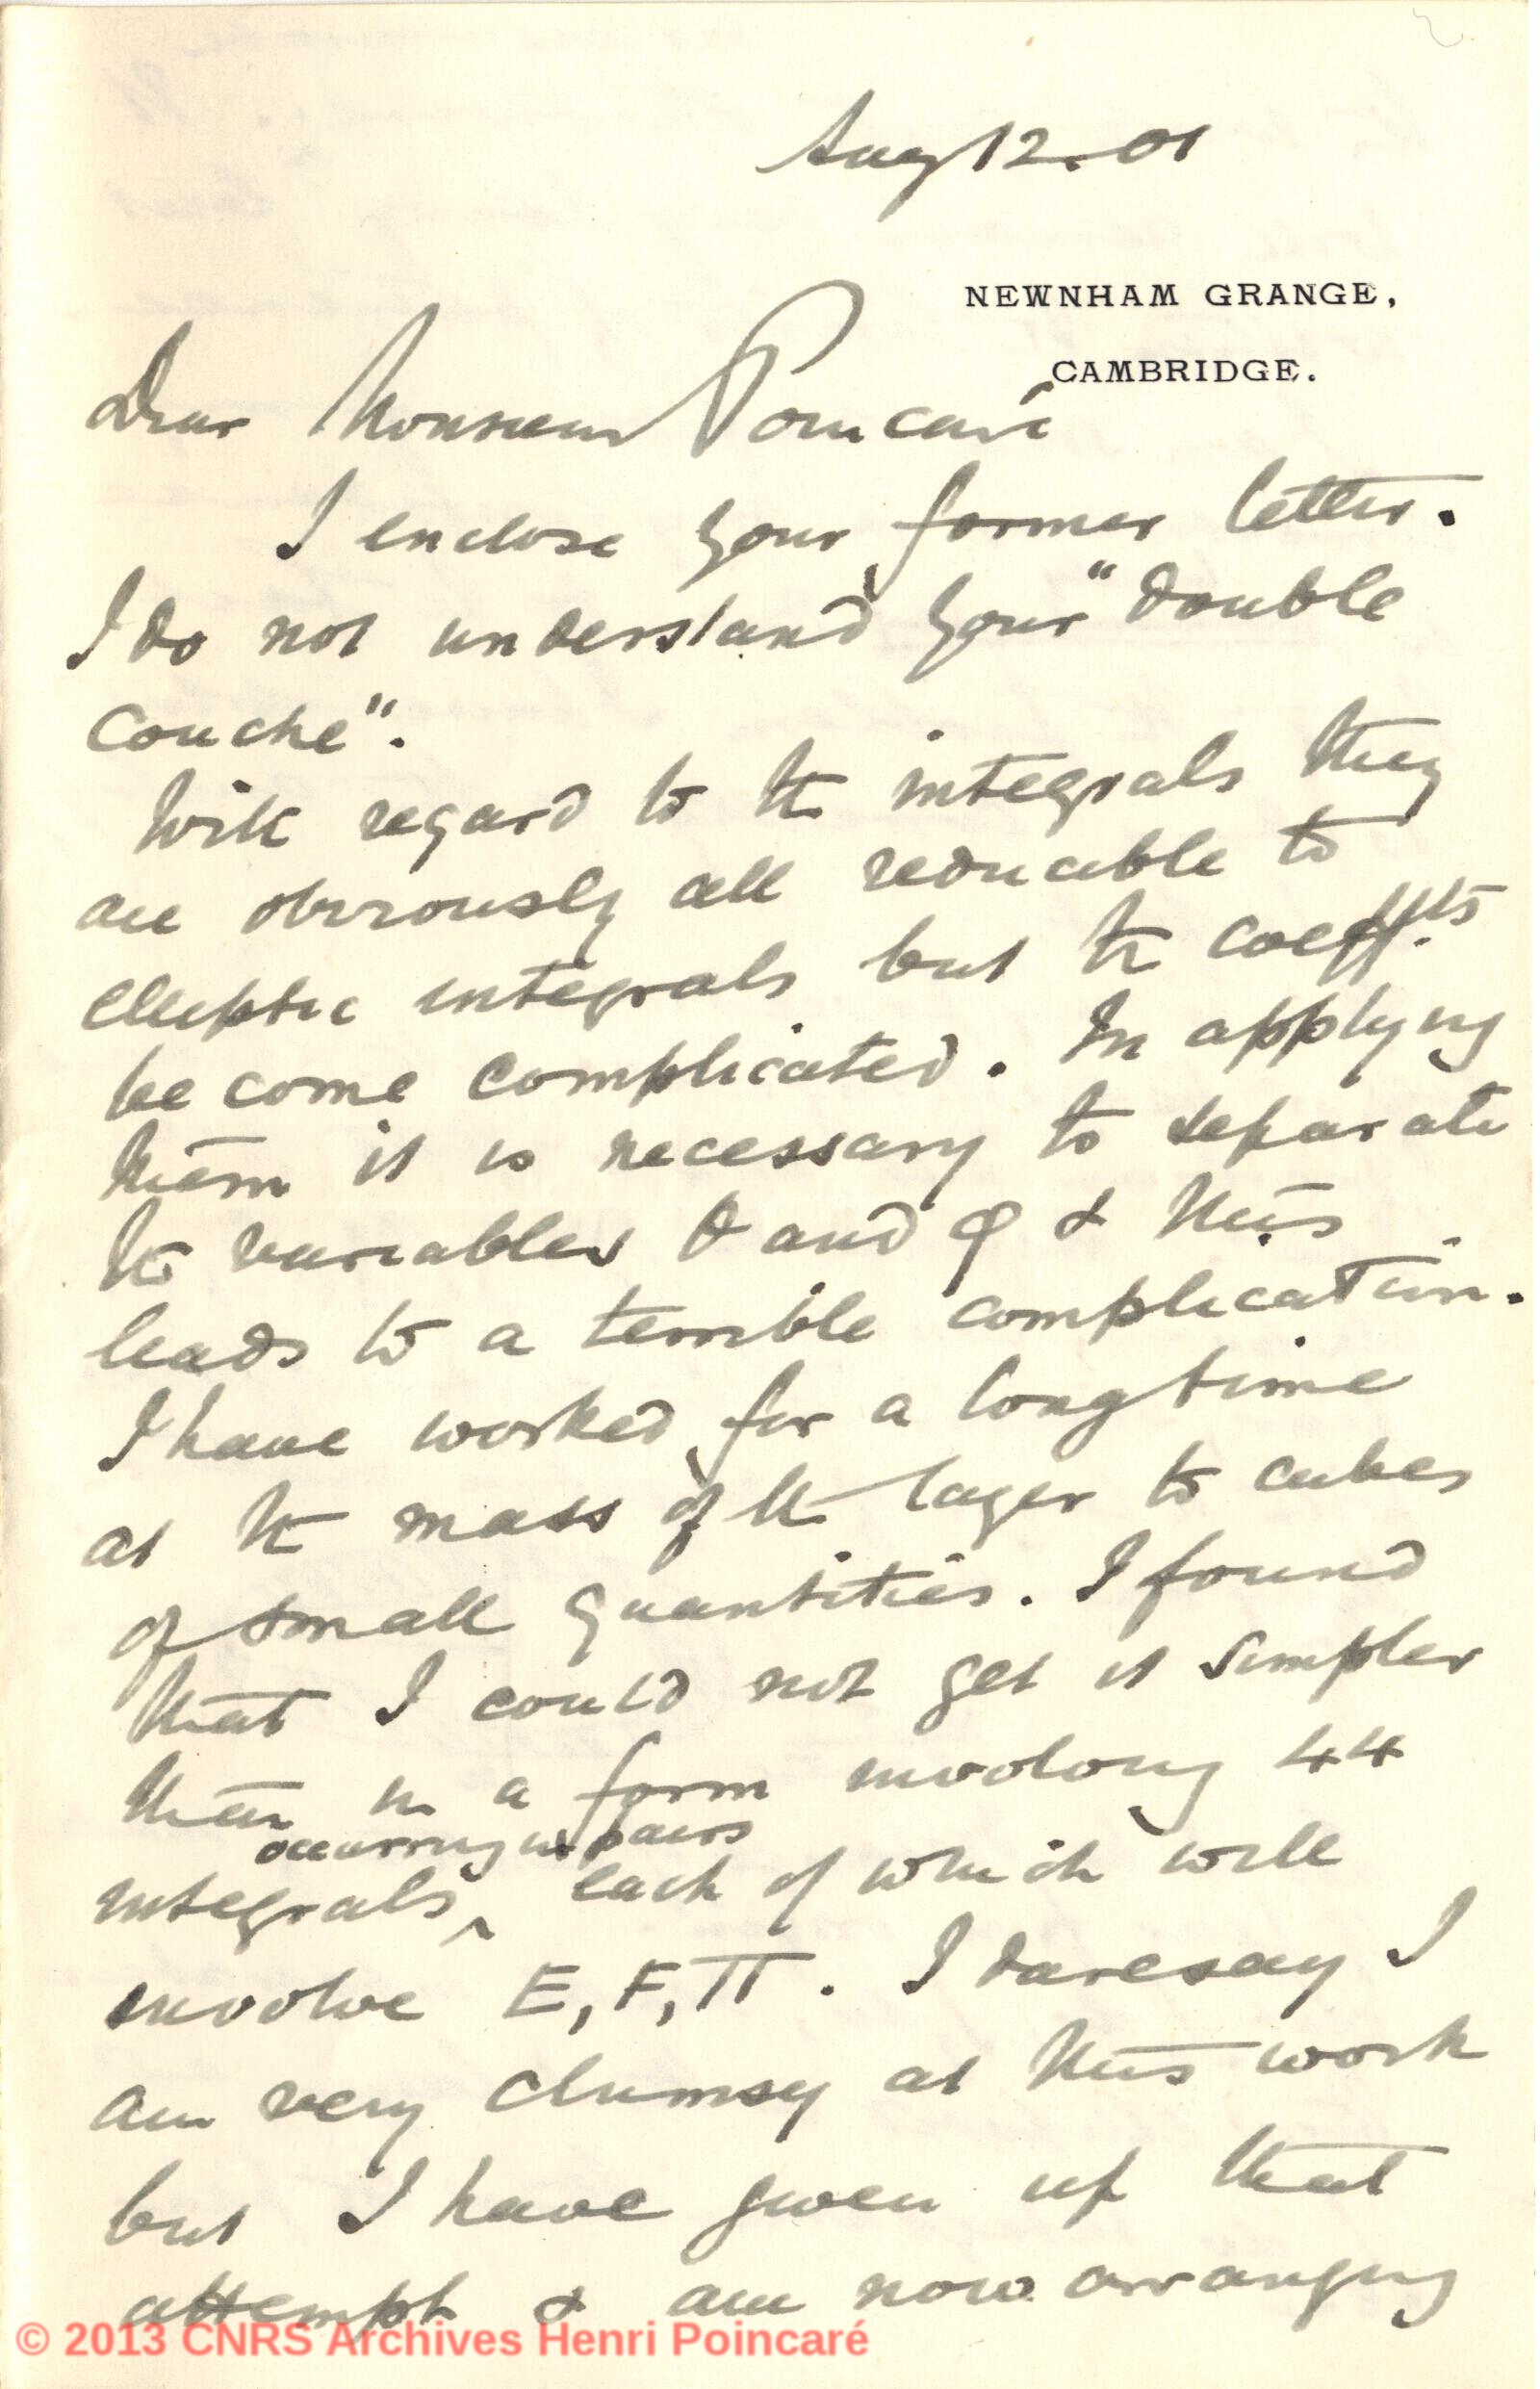 Aug 12. 01
NEWNHAM GRANGE,
CAMBRIDGE.
Dear Monsieur Poincaré
I enclose your former letter.
I do not understand your "double
couche".
With regard to the integrals they
are obviously all reducible to
elliptic integrals but the coeff.ts
become complicated. In applying
them it is necessary to separate
the variables θ and φ & this
leads to a terrible complication.
I have worked for a long time
at the mass of the layer to cubes
of small quantities. I found
that I could not get it simpler
than in a form involving 44
occurring in pairs
integrals ‸ each of which will
involve E, F, Π. I daresay I
am very clumsy at this work
but I have given up that
attempt & am now arranging
© 2013 CNRS Archives Henri Poincaré